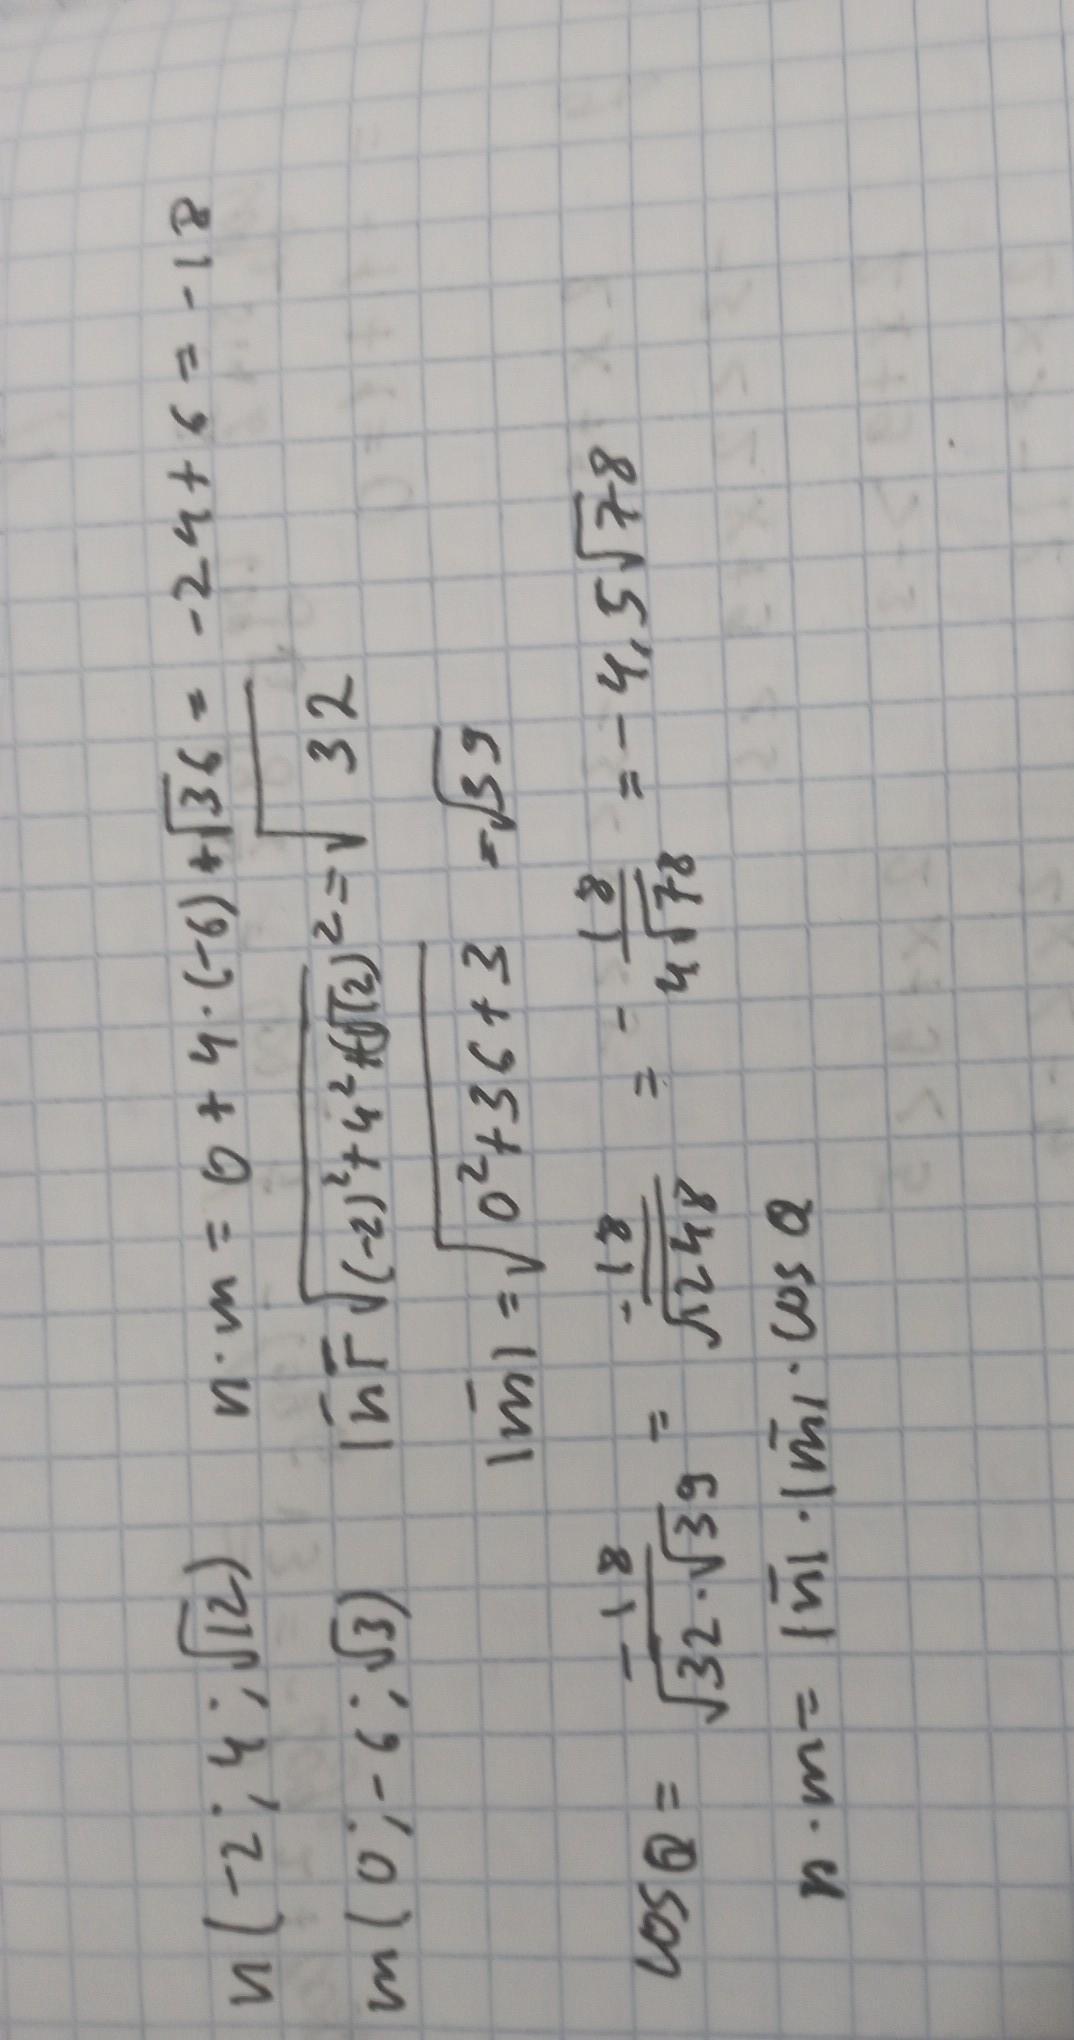 n(-2; 4; √12) n·m = 0 + 4·(-6) + √36 = -24 + 6 = -18
m(0; -6; √3) |n̅| = √((-2)² + 4² + (√12)²) = √32
|m̅| = √(0² + 36 + 3) = √39
cos Q = -18/(√32·√39) = -18/√1248 = -18/(4√78) = -4,5√78
n·m = |n̅|·|m̅|·cos Q